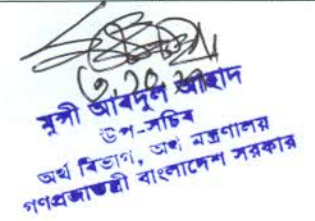 মুন্সী আবদুল আহাদ
উপ-সচিব
অর্থ বিভাগ, অর্থ মন্ত্রণালয়
গণপ্রজাতন্ত্রী বাংলাদেশ সরকার